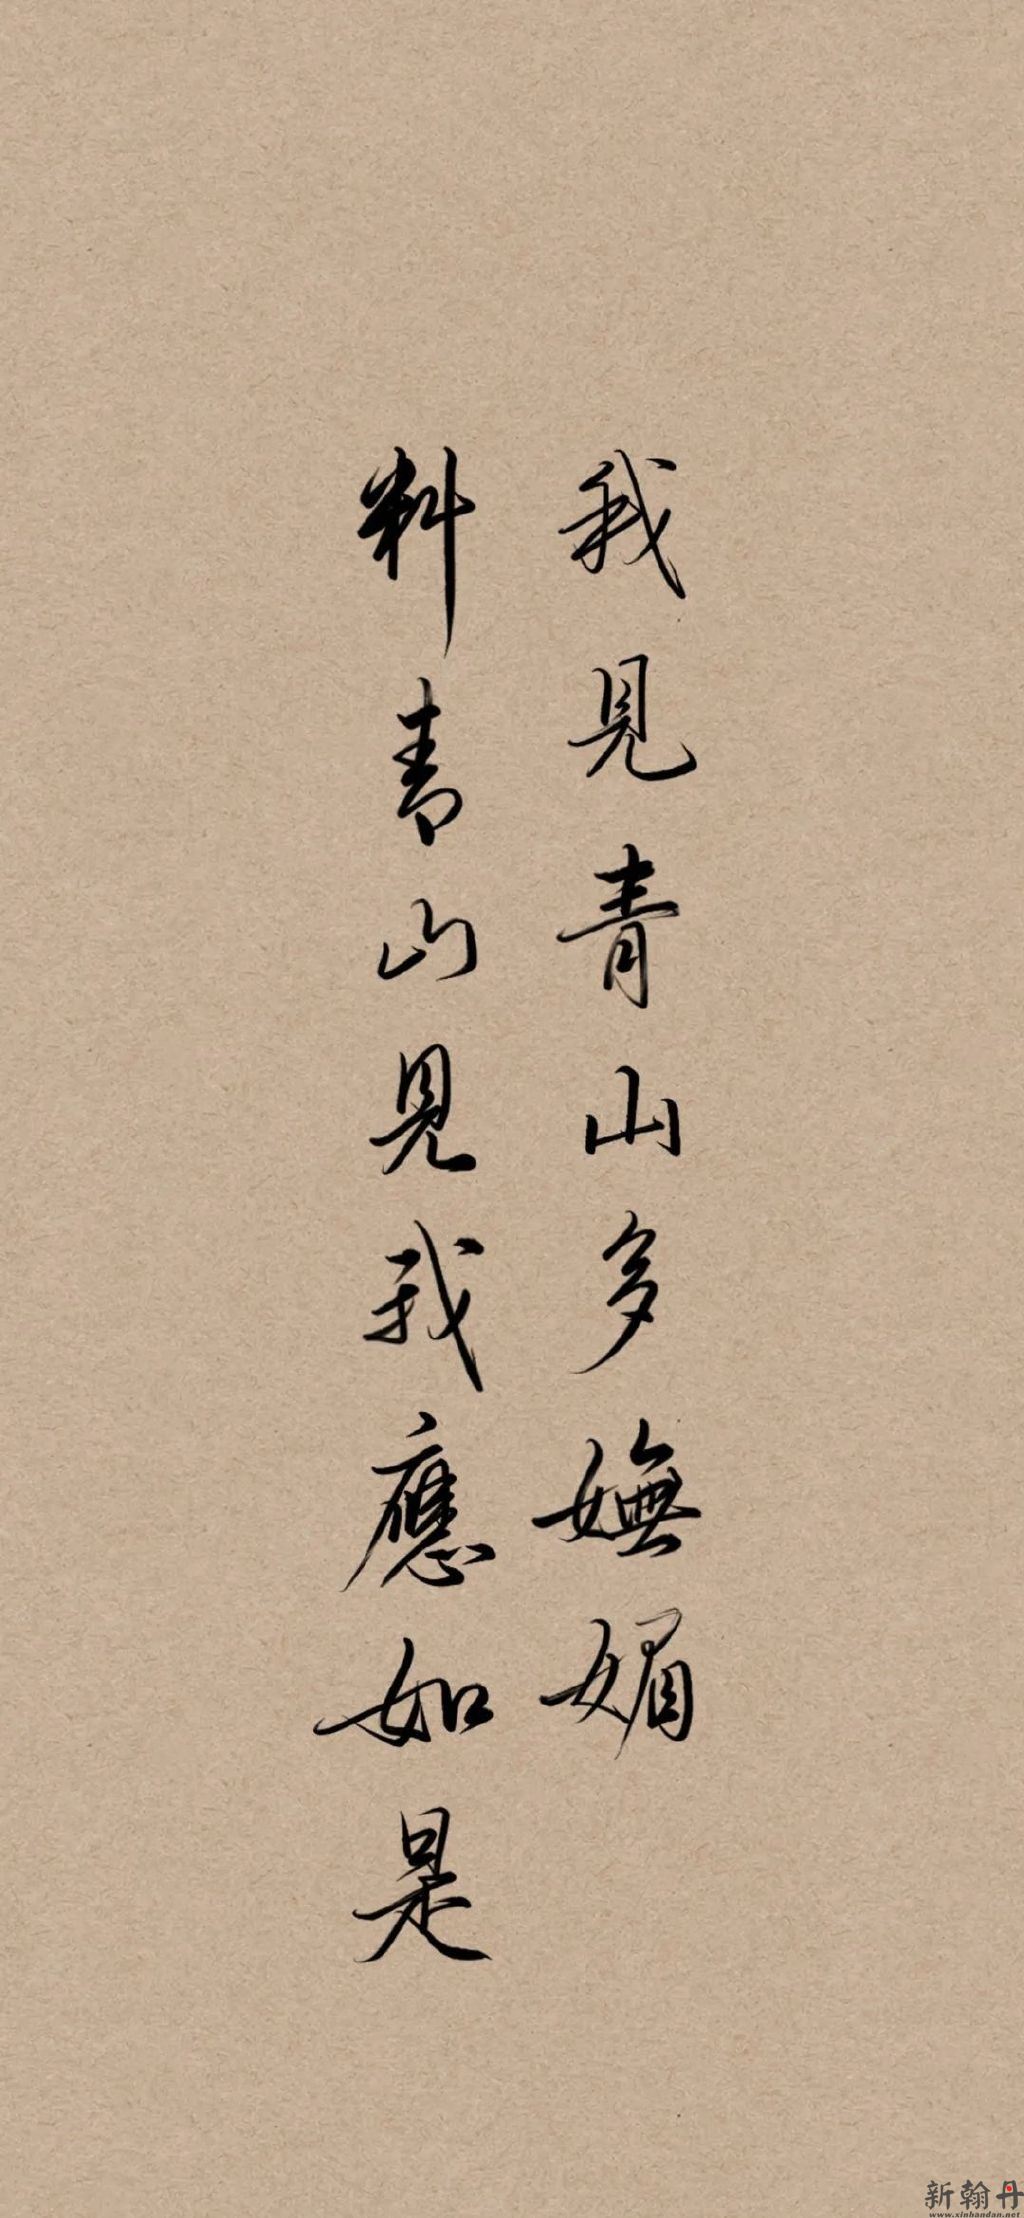 我見青山多嫵媚
料青山見我應如是
新翰丹
www.xinhandan.net